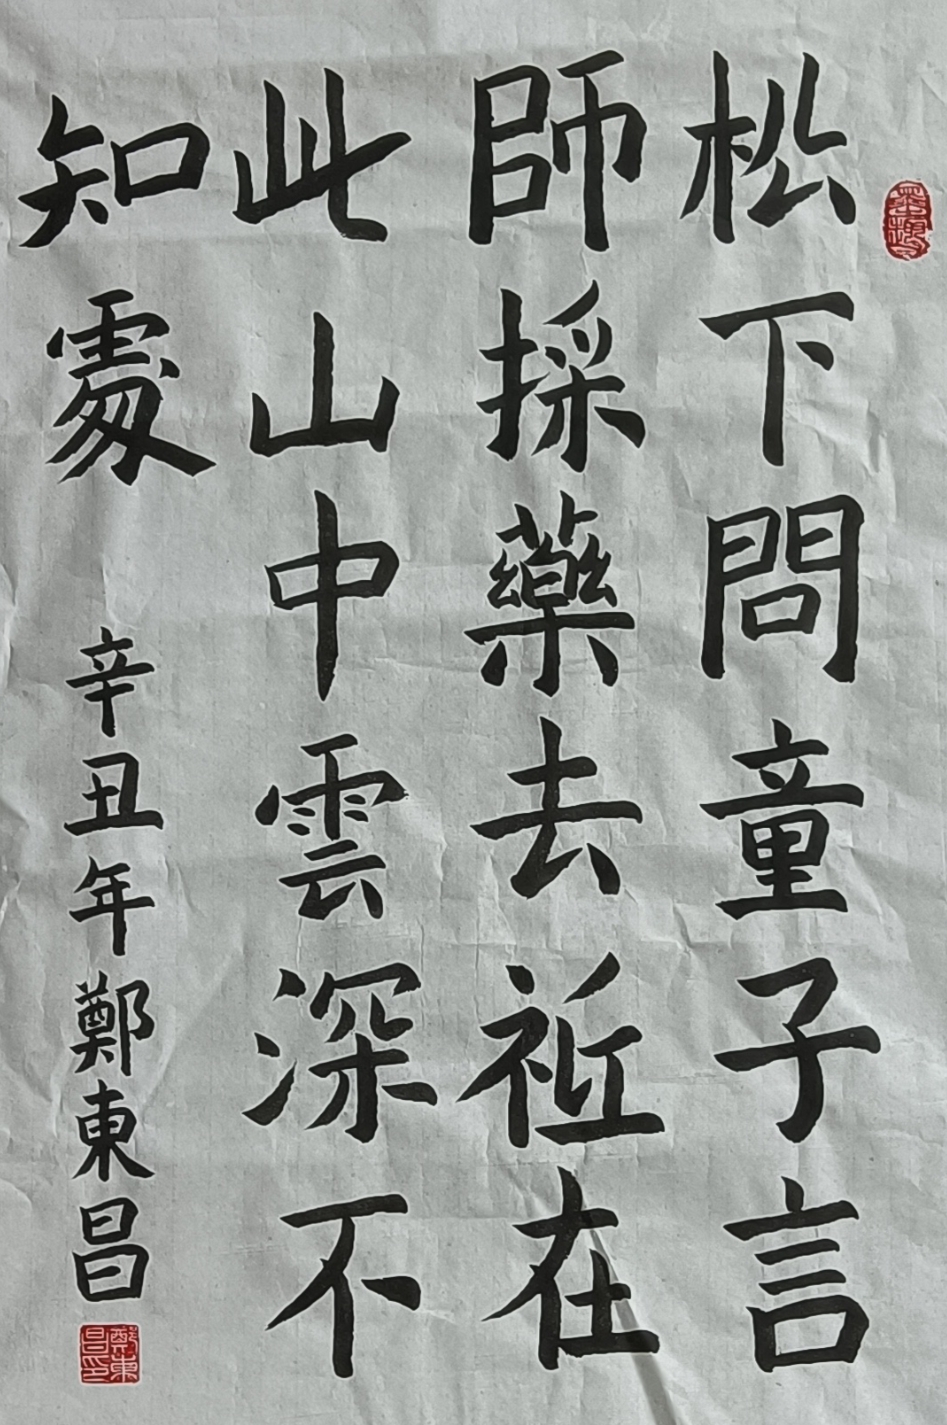 松下問童子言
師採藥去祗在
此山中雲深不
知處
辛丑年鄭東昌
鄭東昌印